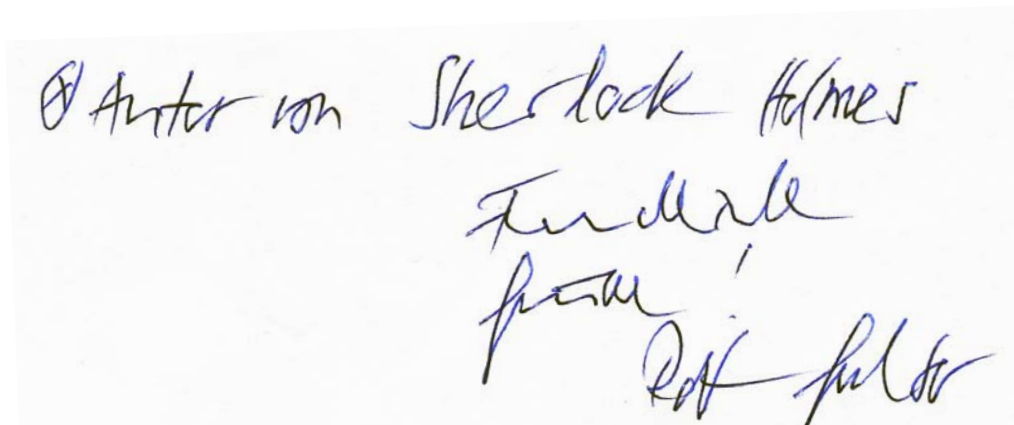 Autor von Sherlock Holmes
Freundliche
Grüße!